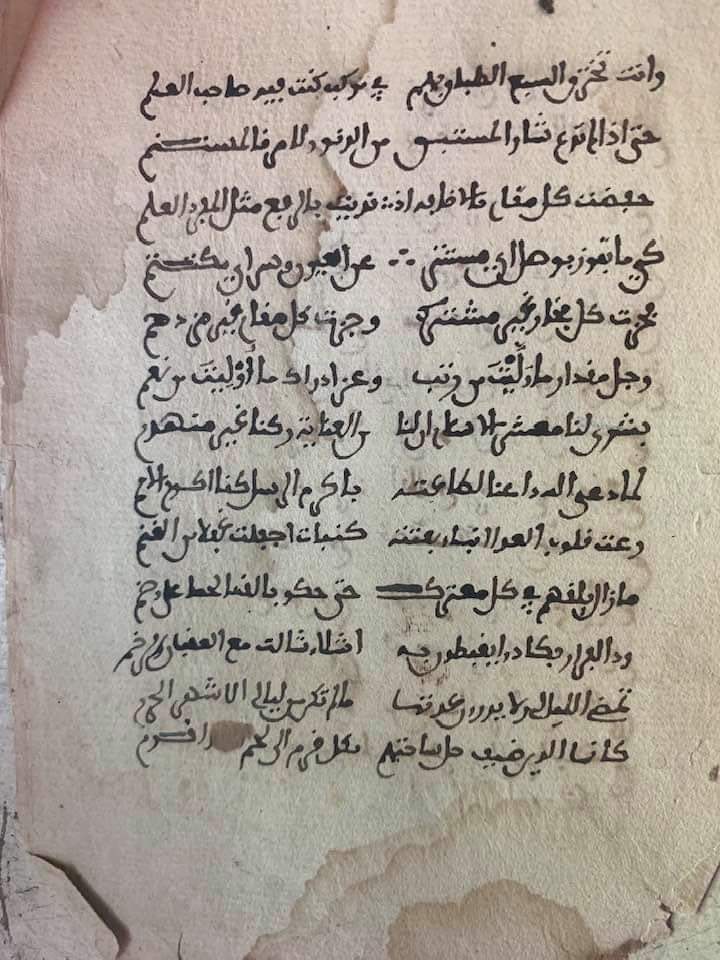 وانت تخترق السبع الطباق بهم في موكب كنت فيه صاحب العلم
حتى اذا لم تدع شأوا لمستبق من الدنو ولا مرقا لمستنم
خفضت كل مقام بالاضافة اذ نوديت بالرفع مثل المفرد العلم
كي ما تفوز بوصل اي مستتر عن العيون وسر اي مكتتم
فحزت كل فخار غير مشترك وجزت كل مقام غير مزدحم
وجل مقدار ما وليت من رتب وعز ادراك ما أوليت من نعم
بشرى لنا معشر الاسلام ان لنا من العناية ركنا غير منهدم
لما دعى الله داعنا لطاعته باكرم الرسل كنا اكرم الامم
رعت قلوب العدا انباء بعثته كنبات اجفلت غفلا من الغنم
ما زال يلقهم في كل معترك حتى حكوا بالقنا لحما على وضم
ودوا الفرار فكادوا يغبطون به اشلاء شالت مع العقبان والرخم
تمضي الليالي ولا يدرون عدتها ما لم تكن من ليالي الاشهر الحرم
كانما الدين ضيف حل ساحتهم بكل قرم الى لحم قرم